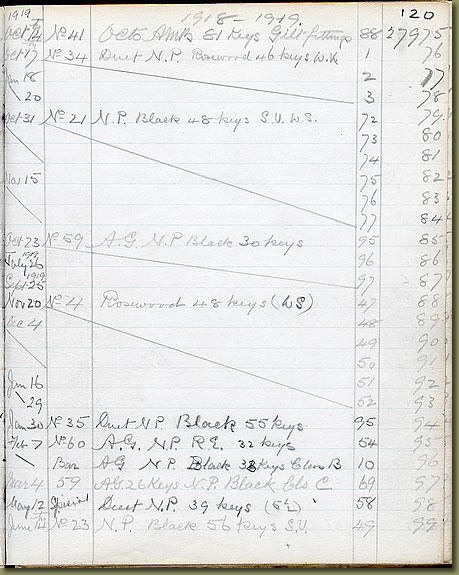 1918 - 1919. 120
1919
Oct 14 No 41 Octo Amb 81 Keys Gilt fittings 88 27975
Oct 17 No 34 Duet N.P. Rosewood 46 keys W.V. 1 76
Jan 18 2 77
" 20 3 78
Oct 31 No 21 N.P. Black 48 keys S.V. W.S. 72 79
73 80
74 81
Nov 15 75 82
76 83
77 84
Oct 23 No 59 A.G. N.P Black 30 keys 95 85
July 26 1919 96 86
Sept 25 1919 97 87
Nov 20 No 4 Rosewood 48 keys (WS) 47 88
Dec 4 48 89
49 90
50 91
Jan 16 51 92
" 29 52 93
Jan 30 No 35 Duet N.P. Black 55 keys 95 94
Feb 7 No 60 A.G. N.P. R.E. 32 keys 54 95
Ban AG N.P. Black 38 keys B 10 96
Mar 4 59 AG 26 Keys N.P. Black C 69 97
May 12 Special Duet N.P. 39 keys 58 98
June No 23 N.P. Black 56 keys S.V. 49 99